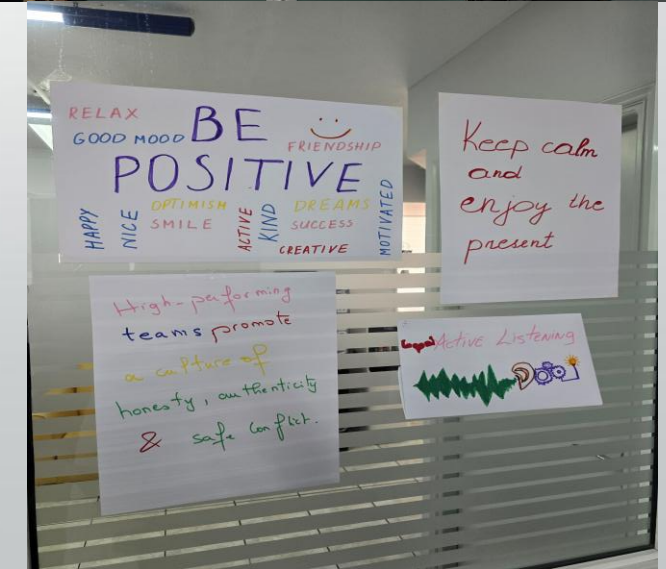 RELAX
GOOD MOOD
BE
POSITIVE
FRIENDSHIP
HAPPY
NICE
OPTIMISM
SMILE
ACTIVE
KIND
DREAMS
SUCCESS
CREATIVE
MOTIVATED
Keep calm
and
enjoy the
present
High-performing
teams promote
a culture of
honesty, authenticity
& safe conflict.
Active Listening